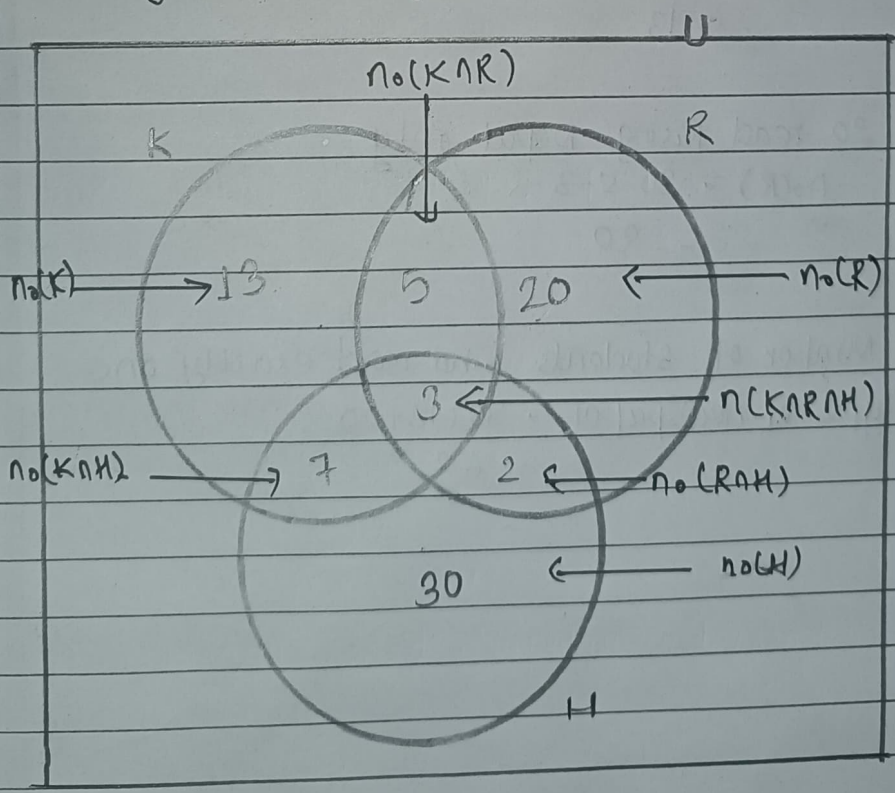 U
n₀(K∩R)
K
R
n₀(K)
13
5
20
n₀(R)
3
n(K∩R∩H)
n₀(K∩H)
7
2
n₀(R∩H)
30
n₀(H)
H